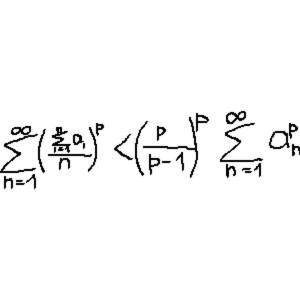 \sum_{n=1}^{\infty} \left( \frac{\sum_{i=1}^{n} a_i}{n} \right)^p < \left( \frac{p}{p-1} \right)^p \sum_{n=1}^{\infty} a_n^p